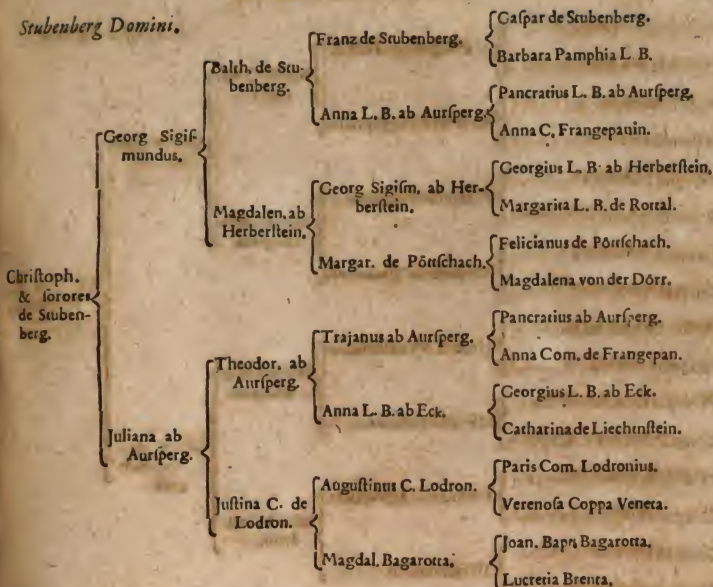 Stubenberg Domini.
Chriſtoph.
& ſorores
de Stuben-
berg.
Georg Sigiſ-
mundus.
Juliana ab
Aurſperg.
Balth. de Stu-
benberg.
Magdalen. ab
Herberſtein.
Theodor. ab
Aurſperg.
Juſtina C. de
Lodron.
Franz de Stubenberg.
Anna L. B. ab Aurſperg.
Georg Sigiſm. ab Her-
berſtein.
Margar. de Pöttſchach.
Trajanus ab Aurſperg.
Anna L. B. ab Eck.
Auguſtinus C. Lodron.
Magdal. Bagarotta.
Gaſpar de Stubenberg.
Barbara Pamphia L. B.
Pancratius L. B. ab Aurſperg.
Anna C. Frangepanin.
Georgius L. B. ab Herberſtein.
Margarita L. B. de Rottal.
Felicianus de Pöttſchach.
Magdalena von der Dörr.
Pancratius ab Aurſperg.
Anna Com. de Frangepan.
Georgius L. B. ab Eck.
Catharina de Liechtnſtein.
Paris Com. Lodronius.
Verenoſa Coppa Veneta.
Joan. Bapt. Bagarotta.
Lucretia Brenta.